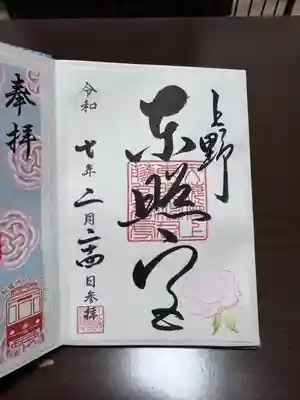 上野
東照宮
令和七年二月二四日参拝
奉拝